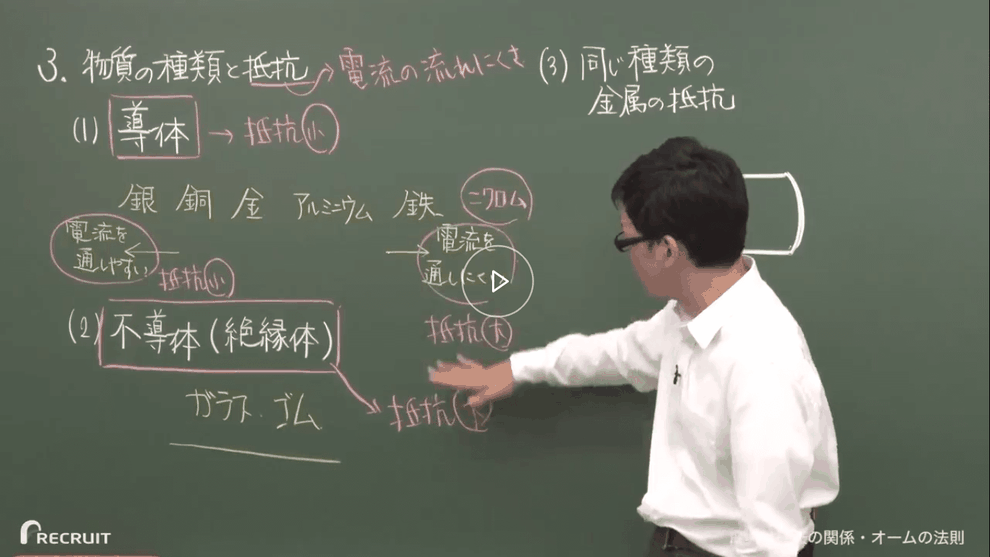 3. 物質の種類と抵抗→電流の流れにくさ
(1) 導体 → 抵抗 小
銀 銅 金 アルミニウム 鉄 ニクロム
電流を通しやすい ← → 電流を通しにくい
抵抗 小
抵抗 大
(2) 不導体(絶縁体)
ガラス・ゴム
抵抗 大
(3) 同じ種類の
金属の抵抗
RECRUIT
の関係・オームの法則